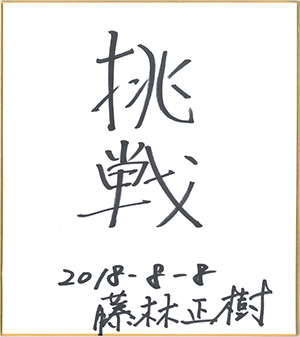 挑戦
2018-8-8
藤林正樹